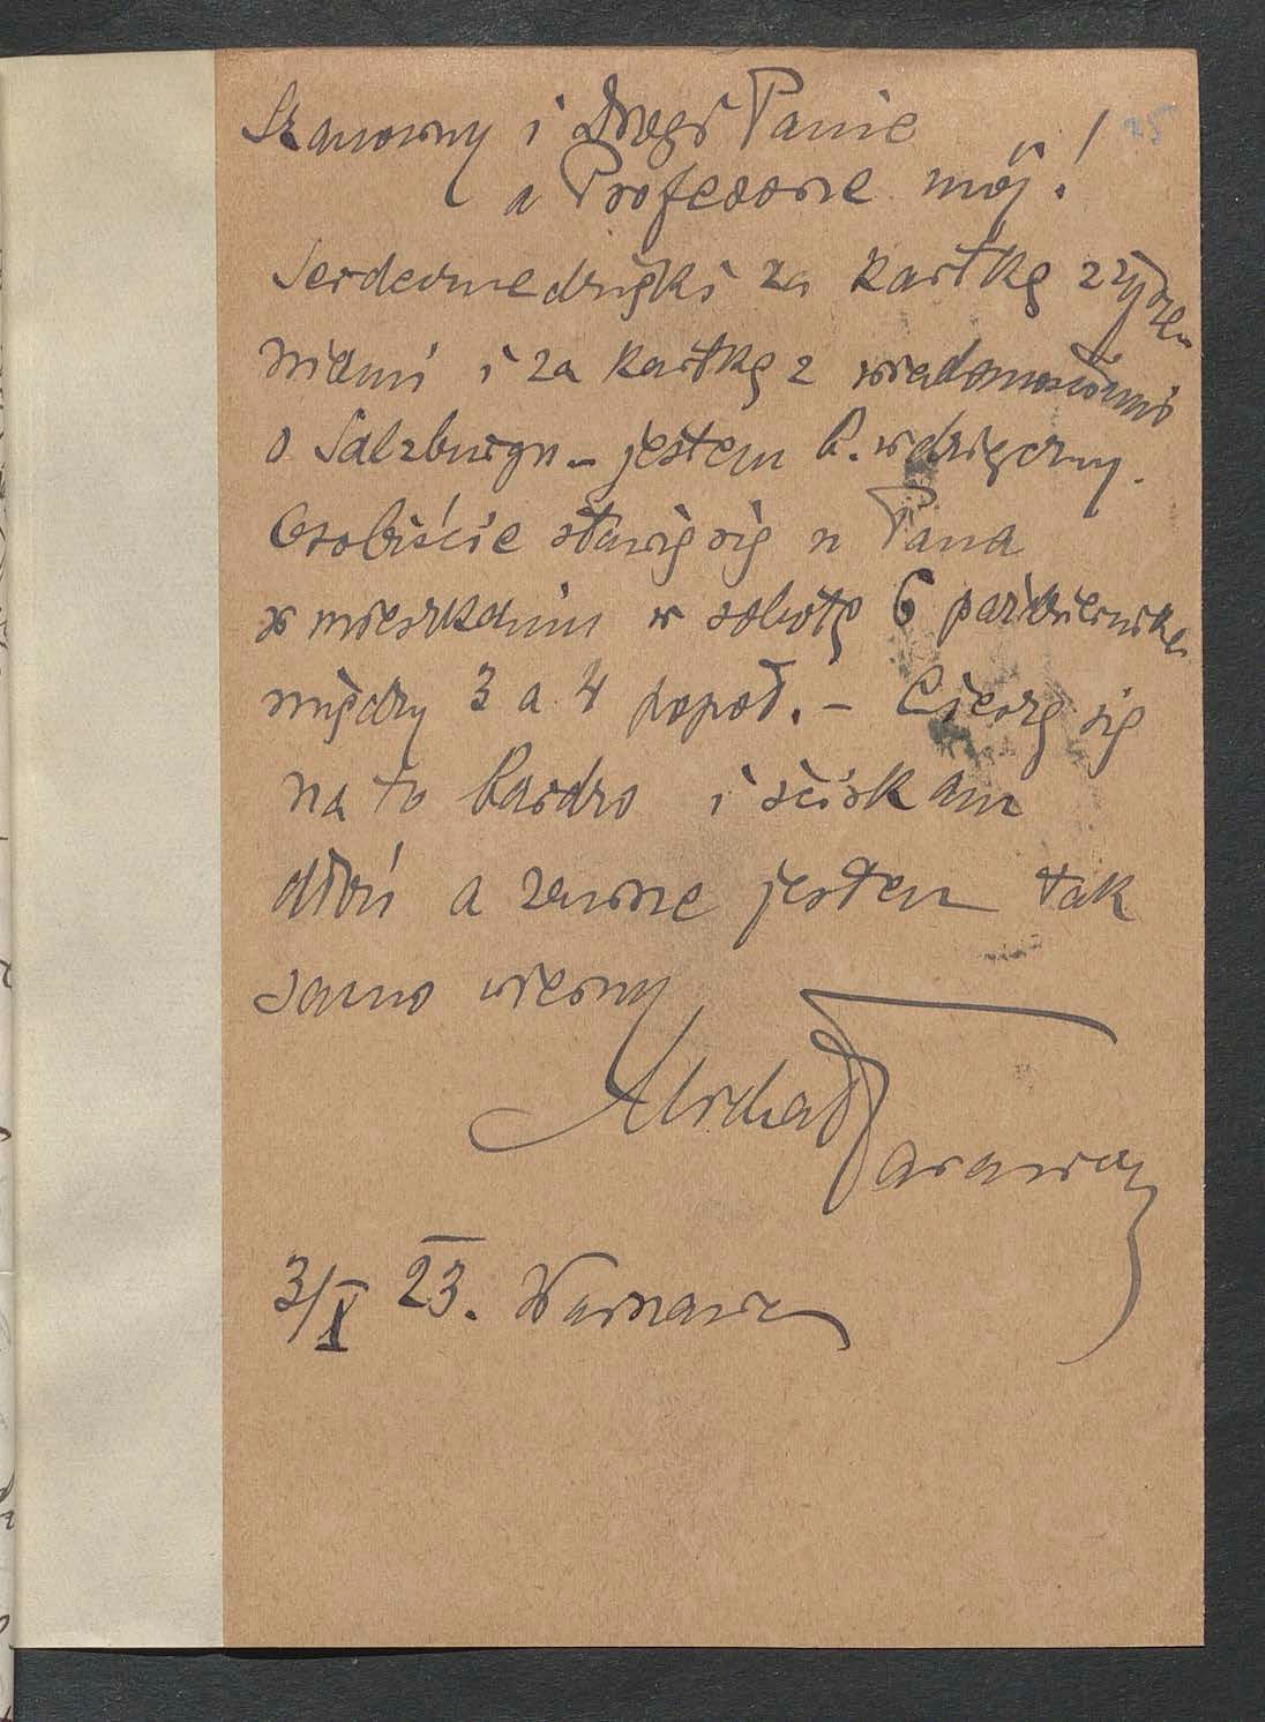 Szanowny i Drogi Panie
a Profesorze mój!
25
Serdeczne dzięki za kartkę z życze
niami i za kartkę z wiadomościami
o Salzburgu – jestem b. wdzięczny.
Osobiście stawię się u Pana
w mieszkaniu w sobotę 6 października
między 3 a 4 popoł. – Cieszę się
na to bardzo i ściskam
dłoń a zawsze jestem tak
samo wierny
Michał Tarawicz
3/X 23. Warszawa